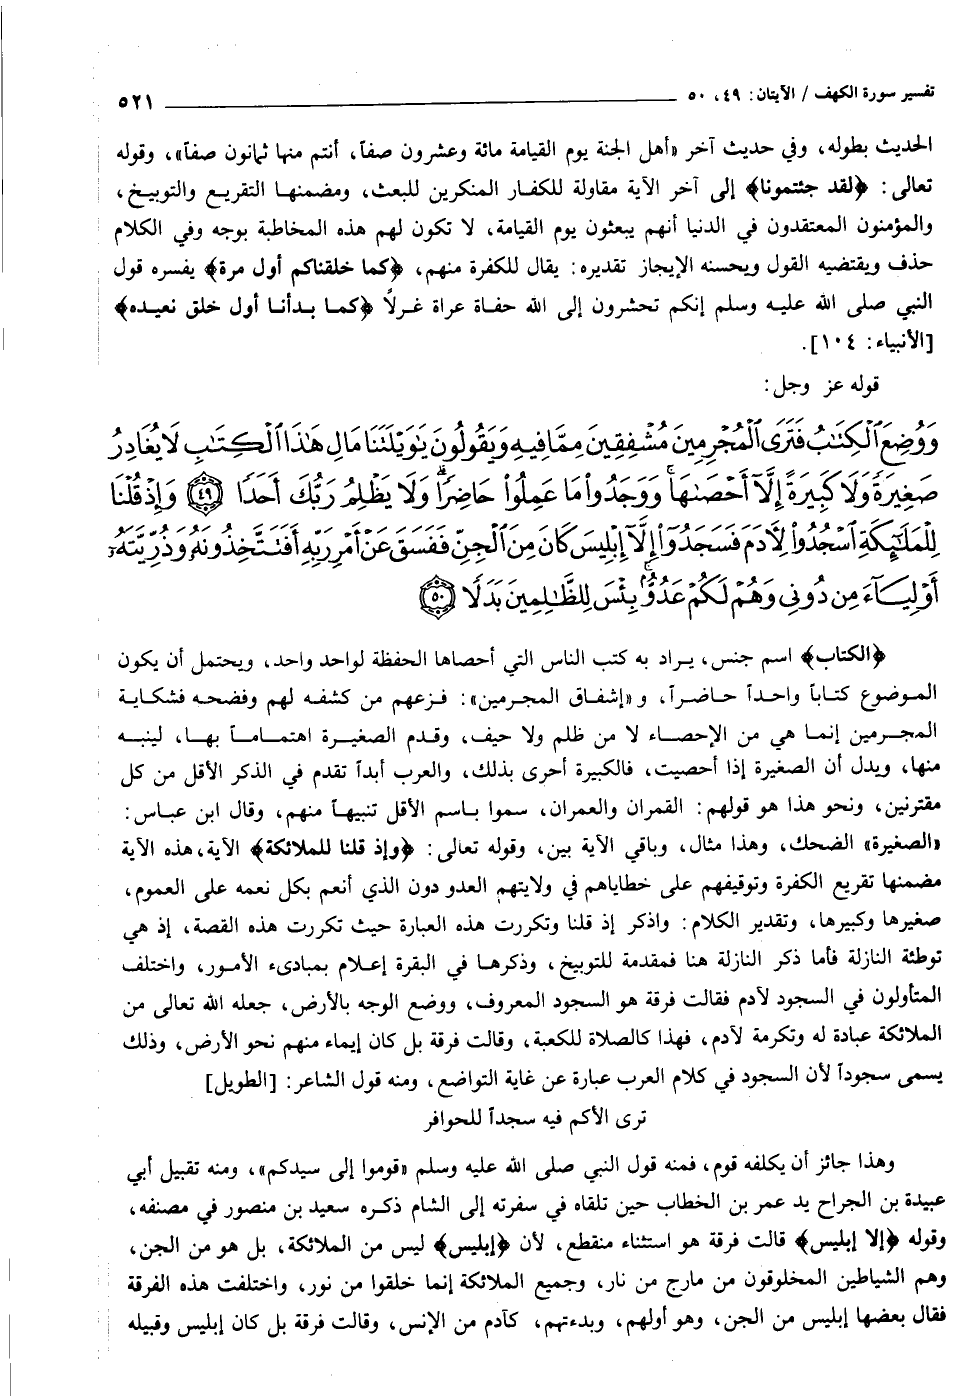 تفسير سورة الكهف / الآيتان: ٤٩، ٥٠ ٥٢١
الحديث بطوله، وفي حديث آخر «أهل الجنة يوم القيامة مائة وعشرون صفاً، أنتم منها ثمانون صفاً»، وقوله
تعالى: ﴿لقد جئتمونا﴾ إلى آخر الآية مقاولة للكفار المنكرين للبعث، ومضمنها التقريع والتوبيخ،
والمؤمنون المعتقدون في الدنيا أنهم يبعثون يوم القيامة، لا تكون لهم هذه المخاطبة بوجه وفي الكلام
حذف ويقتضيه القول ويحسنه الإيجاز تقديره: يقال للكفرة منهم، ﴿كما خلقناكم أول مرة﴾ يفسره قول
النبي صلى الله عليه وسلم إنكم تحشرون إلى الله حفاة عراة غرلاً ﴿كما بدأنا أول خلق نعيده﴾
[الأنبياء: ١٠٤].
قوله عز وجل:
وَوُضِعَ ٱلْكِتَٰبُ فَتَرَى ٱلْمُجْرِمِينَ مُشْفِقِينَ مِمَّا فِيهِ وَيَقُولُونَ يَٰوَيْلَتَنَا مَالِ هَٰذَا ٱلْكِتَٰبِ لَا يُغَادِرُ
صَغِيرَةً وَلَا كَبِيرَةً إِلَّآ أَحْصَىٰهَا ۚ وَوَجَدُوا۟ مَا عَمِلُوا۟ حَاضِرًا ۗ وَلَا يَظْلِمُ رَبُّكَ أَحَدًا ﴿٤٩﴾ وَإِذْ قُلْنَا
لِلْمَلَٰٓئِكَةِ ٱسْجُدُوا۟ لِءَادَمَ فَسَجَدُوٓا۟ إِلَّآ إِبْلِيسَ كَانَ مِنَ ٱلْجِنِّ فَفَسَقَ عَنْ أَمْرِ رَبِّهِ أَفَتَتَّخِذُونَهُۥ وَذُرِّيَّتَهُۥٓ
أَوْلِيَآءَ مِن دُونِى وَهُمْ لَكُمْ عَدُوٌّۢ ۚ بِئْسَ لِلظَّٰلِمِينَ بَدَلًا ﴿٥٠﴾
﴿الكتاب﴾ اسم جنس، يراد به كتب الناس التي أحصاها الحفظة لواحد واحد، ويحتمل أن يكون
الموضوع كتاباً واحداً حاضراً، و«إشفاق المجرمين»: فزعهم من كشفه لهم وفضحه فشكاية
المجرمين إنما هي من الإحصاء لا من ظلم ولا حيف، وقدم الصغيرة اهتماماً بها، لينبه
منها، ويدل أن الصغيرة إذا أحصيت، فالكبيرة أحرى بذلك، والعرب أبداً تقدم في الذكر الأقل من كل
مقترنين، ونحو هذا هو قولهم: القمران والعمران، سموا باسم الأقل تنبيهاً منهم، وقال ابن عباس:
«الصغيرة» الضحك، وهذا مثال، وباقي الآية بين، وقوله تعالى: ﴿وإذ قلنا للملائكة﴾ الآية، هذه الآية
مضمنها تقريع الكفرة وتوقيفهم على خطاياهم في ولايتهم العدو دون الذي أنعم بكل نعمه على العموم،
صغيرها وكبيرها، وتقدير الكلام: واذكر إذ قلنا وتكررت هذه العبارة حيث تكررت هذه القصة، إذ هي
توطئة النازلة فأما ذكر النازلة هنا فمقدمة للتوبيخ، وذكرها في البقرة إعلام بمبادىء الأمور، واختلف
المتأولون في السجود لآدم فقالت فرقة هو السجود المعروف، ووضع الوجه بالأرض، جعله الله تعالى من
الملائكة عبادة له وتكرمة لآدم، فهذا كالصلاة للكعبة، وقالت فرقة بل كان إيماء منهم نحو الأرض، وذلك
يسمى سجوداً لأن السجود في كلام العرب عبارة عن غاية التواضع، ومنه قول الشاعر: [الطويل]
ترى الأكم فيه سجداً للحوافر
وهذا جائز أن يكلفه قوم، فمنه قول النبي صلى الله عليه وسلم «قوموا إلى سيدكم»، ومنه تقبيل أبي
عبيدة بن الجراح يد عمر بن الخطاب حين تلقاه في سفرته إلى الشام ذكره سعيد بن منصور في مصنفه،
وقوله ﴿إلا إبليس﴾ قالت فرقة هو استثناء منقطع، لأن ﴿إبليس﴾ ليس من الملائكة، بل هو من الجن،
وهم الشياطين المخلوقون من مارج من نار، وجميع الملائكة إنما خلقوا من نور، واختلفت هذه الفرقة
فقال بعضها إبليس من الجن، وهو أولهم، وبدءتهم، كآدم من الإنس، وقالت فرقة بل كان إبليس وقبيله